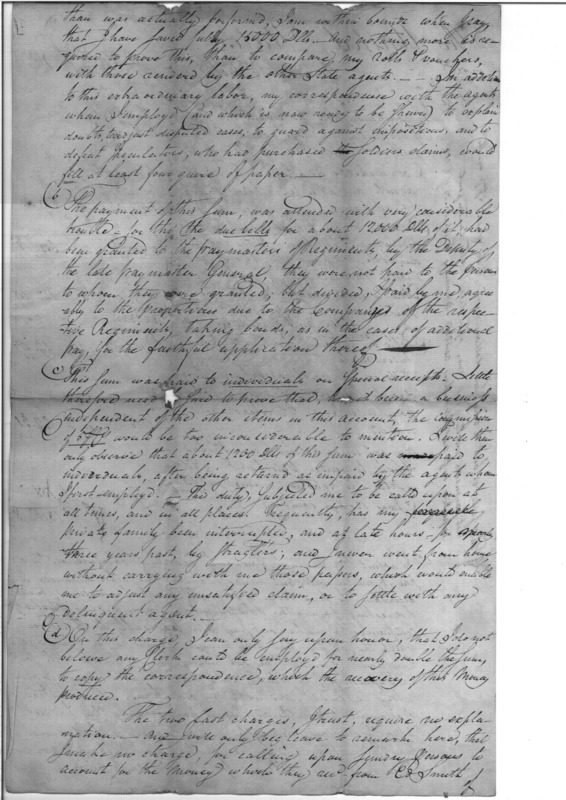 than was actually performed, I am within bounds when I say,
that I have saved fully 15000 Dlls — And nothing more is re-
quired to prove this, than to compare my rolls & vouchers,
with those rendered by the other State agents — — In addition
to this extraordinary labor, my correspondence with the agents
whom I employd (and which is now ready to be shewed) to explain
doubts, to adjust disputed cases, to guard against impositions, and to
defeat speculators, who had purchased Soldiers claims, would
fill at least four quire of paper —
(b) The payment of this sum, was attended with very considerable
trouble — for the due bills for about 12000 Dlls. of it, had
been granted to the paymasters of Regiments, by the Deputy of
the late paymaster General, they were not paid to the persons
to whom they were granted; but divided, & paid by me, agree
ably to the proportions due to the Companies of the respec-
tive Regiments, taking bonds, as in the case of additional
pay, for the faithful application thereof
(c) This sum was paid to individuals on Special receipts — Little
therefore need be said to prove that, had it been a business
independent of the other items in this account, the commission
of would be too inconsiderable to mention. I will then
only observe that about 1200 Dlls of this sum was paid to
individuals, after being returned as unpaid by the agents whom
I first employd. — This duty, subjected me to be called upon at
all times, and in all places. Frequently, has my
private family been interrupted, and at late hours — for nearly
three years past, by straglers; and I never went from home
without carrying with me those papers, which would enable
me to adjust any unsatisfied claim, or to settle with any
delinquent agent. —
(d) On this charge, I can only say upon honor, that I do not
believe any Clerk could be employd for nearly double the sum,
to copy the correspondence, which the recovery of this Money
produced.
The two last charges, I trust, require no expla-
nation — and I will only beg leave to remark here, that
I make no charge, for calling upon Sundry persons to
account for the Money which they recd from E Smith